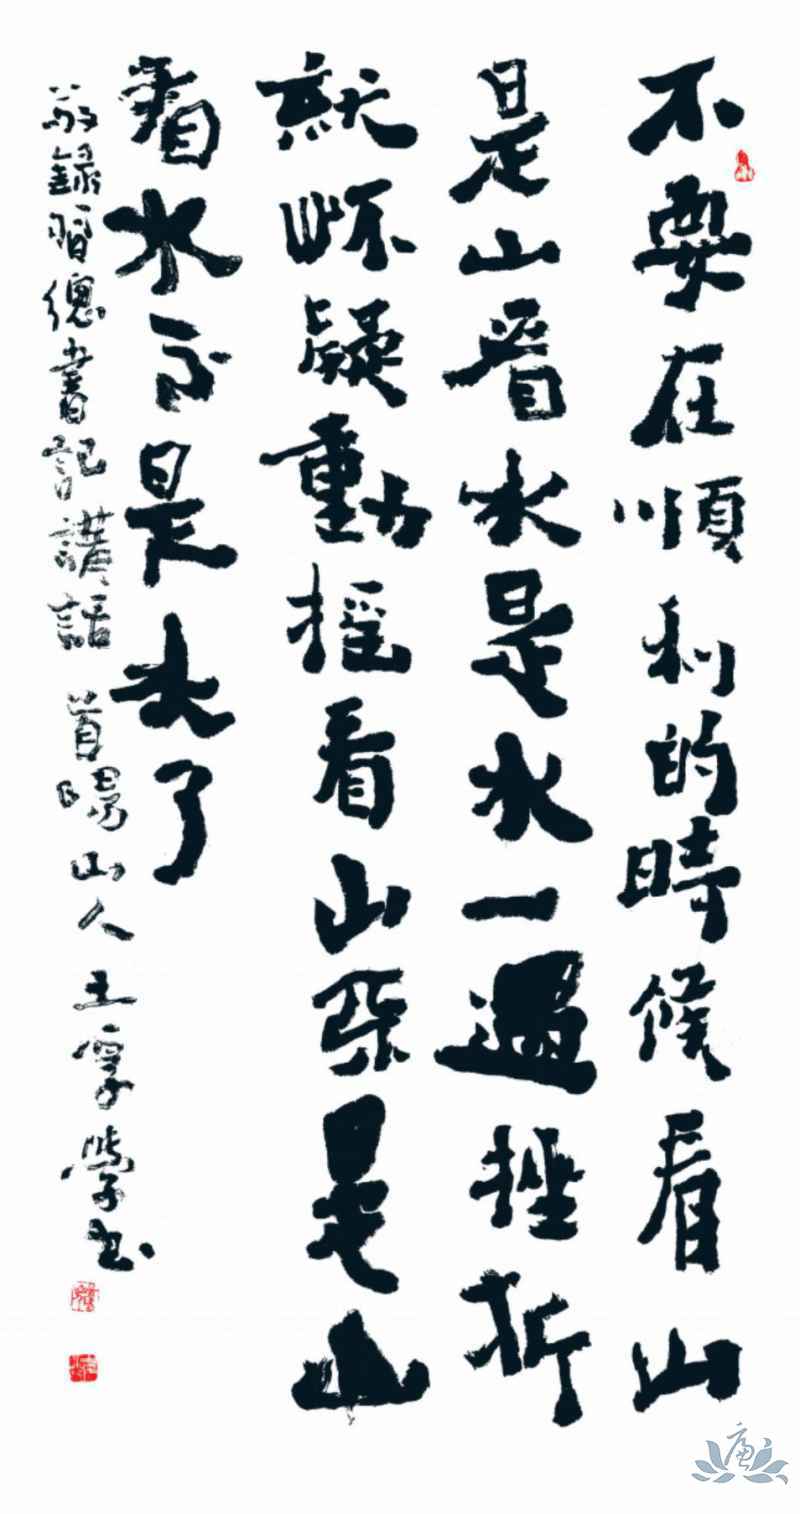 不要在順利的時候看山
是山看水是水一遇挫折
就怀疑動摇看山不是山
看水不是水了
錄習總書記講話 首陽山人王學书
廉